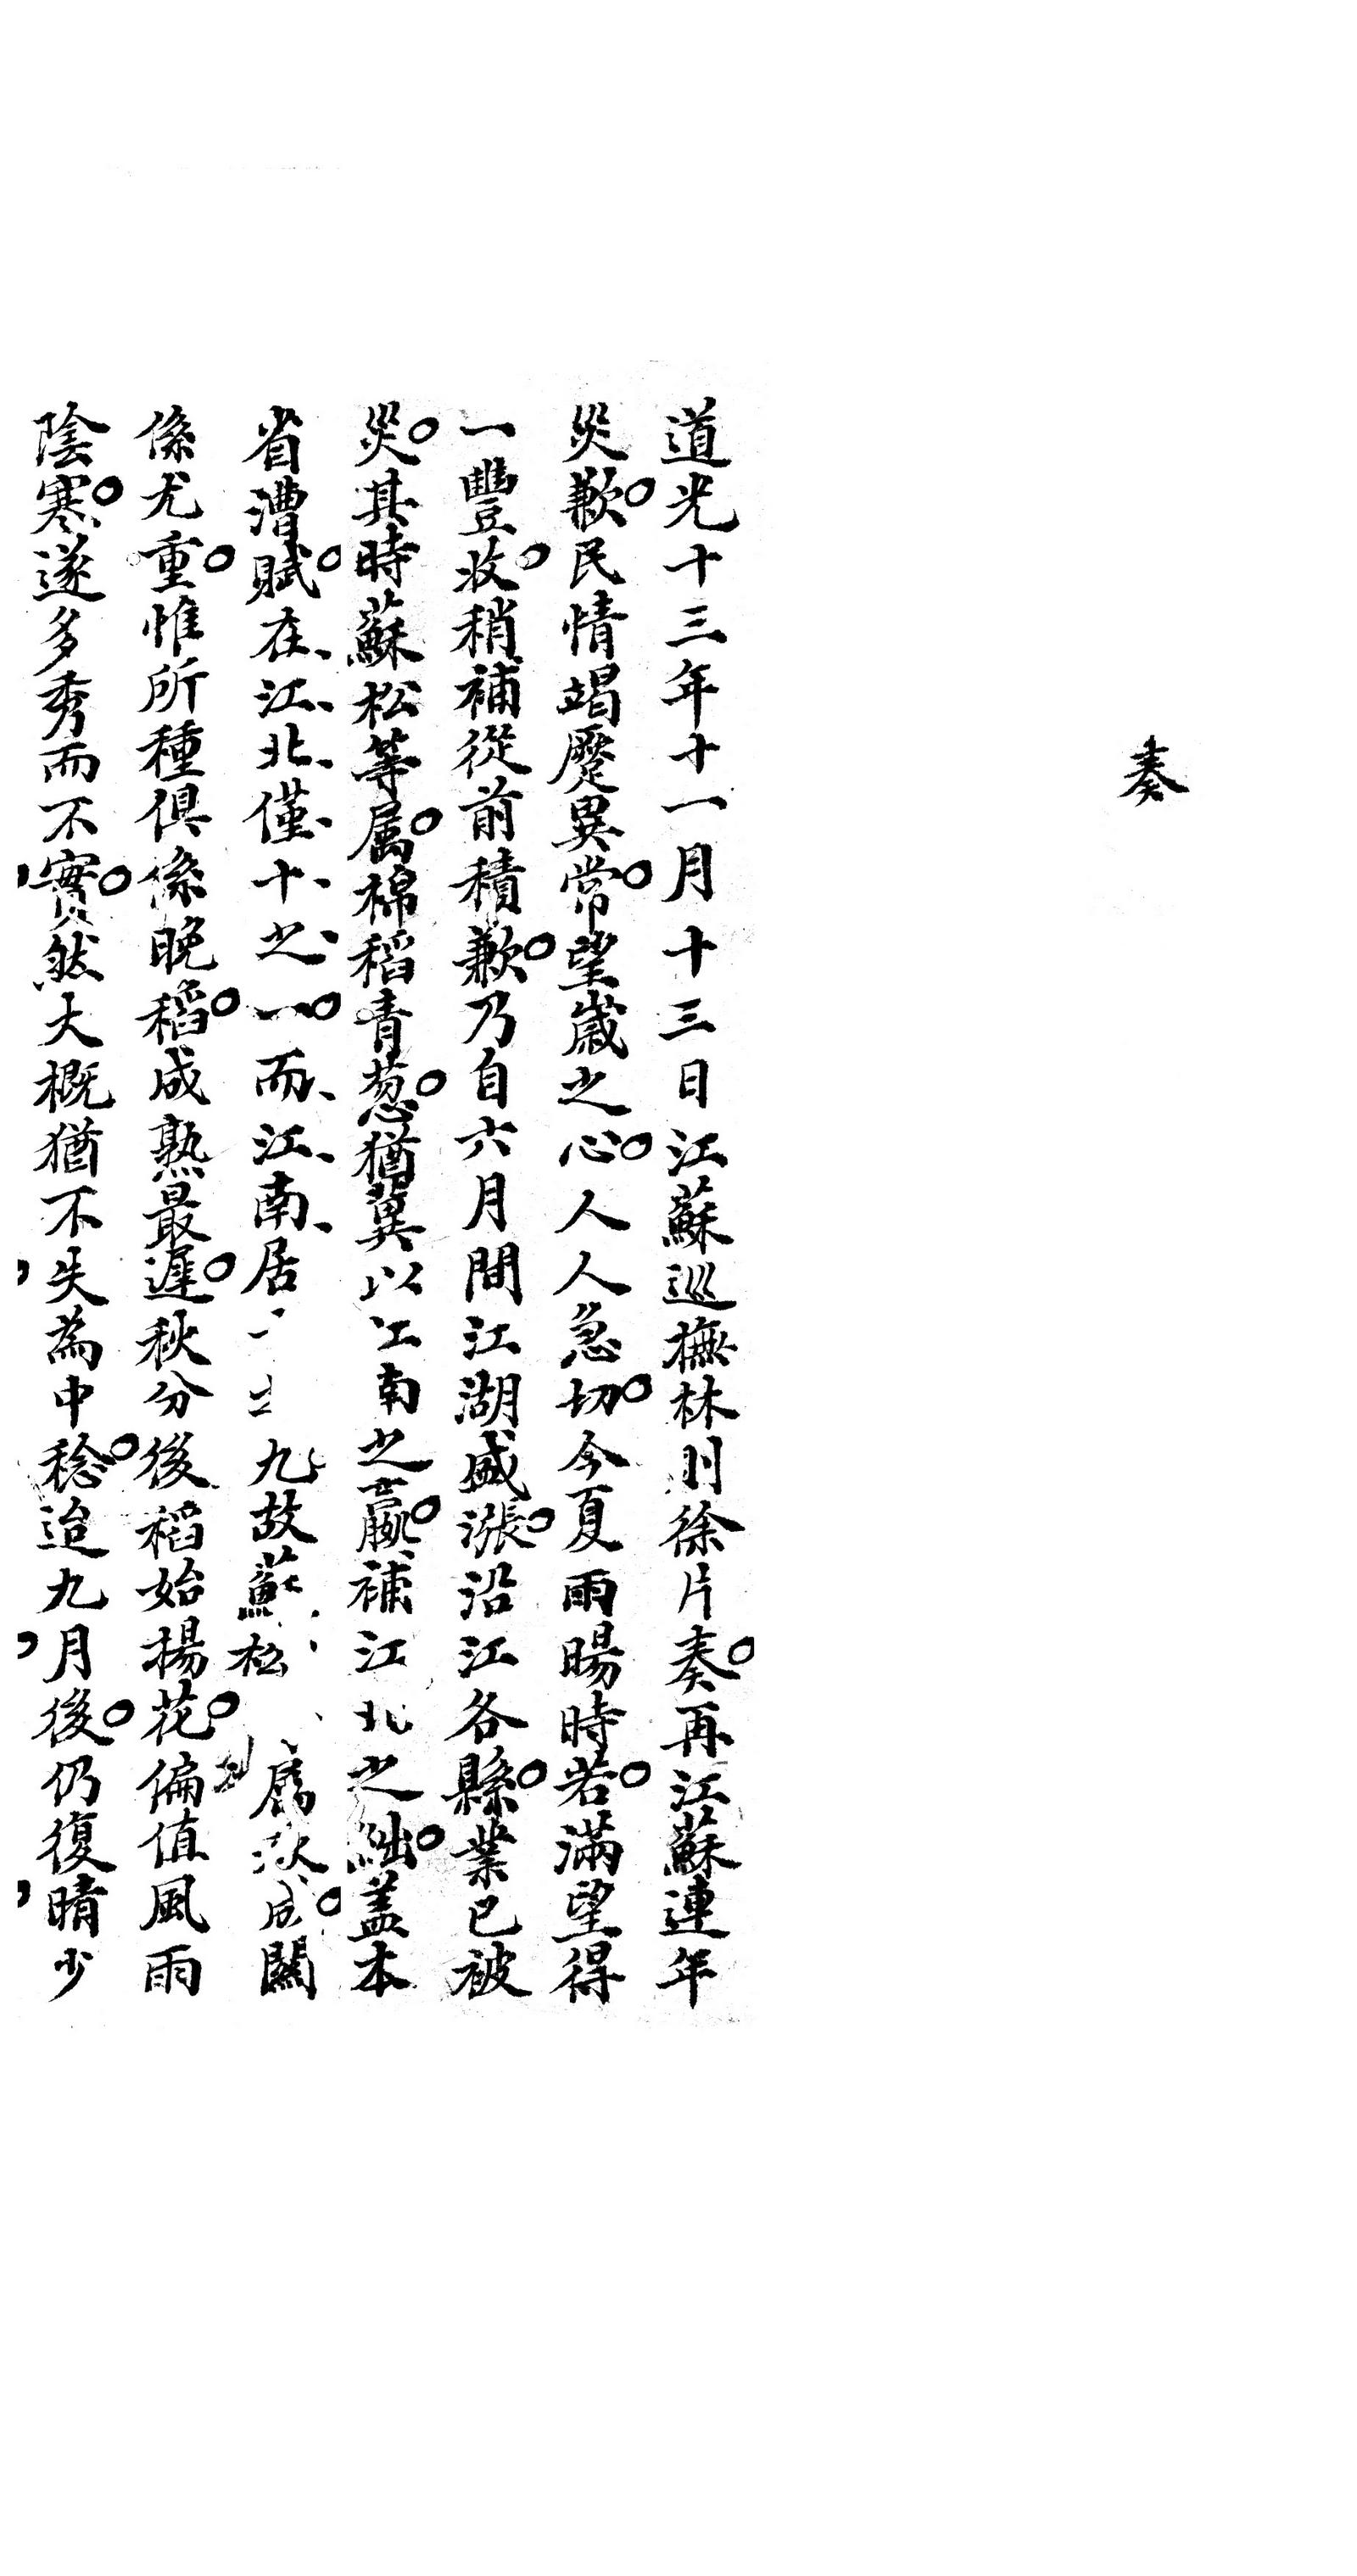 奏
道光十三年十一月十三日江蘇巡撫林則徐片奏。再江蘇連年
災歉。民情竭蹷異常。望歲之心。人人急切。今夏雨暘時若。滿望得
一豐收。稍補從前積歉。乃自六月間江湖盛漲。沿江各縣。業已被
災。其時蘇松等属。棉稻青葱。猶冀以江南之贏。補江北之絀。盖本
省漕賦。在江北僅十之一。而江南居 九故蘇松 属秋成。關
係尤重。惟所種俱係晚稻。成熟最遲。秋分後稻始揚花。偏值風雨
陰寒。遂多秀而不實。然大概猶不失為中稔。迨九月後。仍復晴少